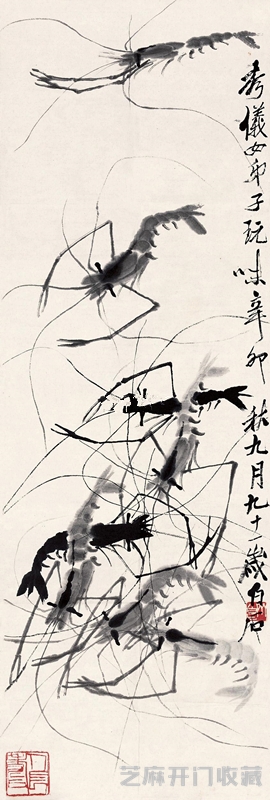 秀儀女弟子玩味辛卯秋九月九十一歲白石
芝麻开门收藏